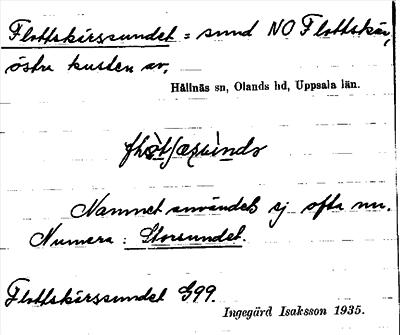 Flottskärssundet = sund NO Flottskär,
östra kusten av,
Hållnäs sn, Olands hd, Uppsala län.
Namnet användes ej ofta nu.
Numera : Storsundet.
Flottskärssundet G99.
Ingegärd Isaksson 1935.